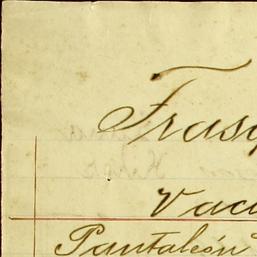 Frasq
Vacu
Pantaleón